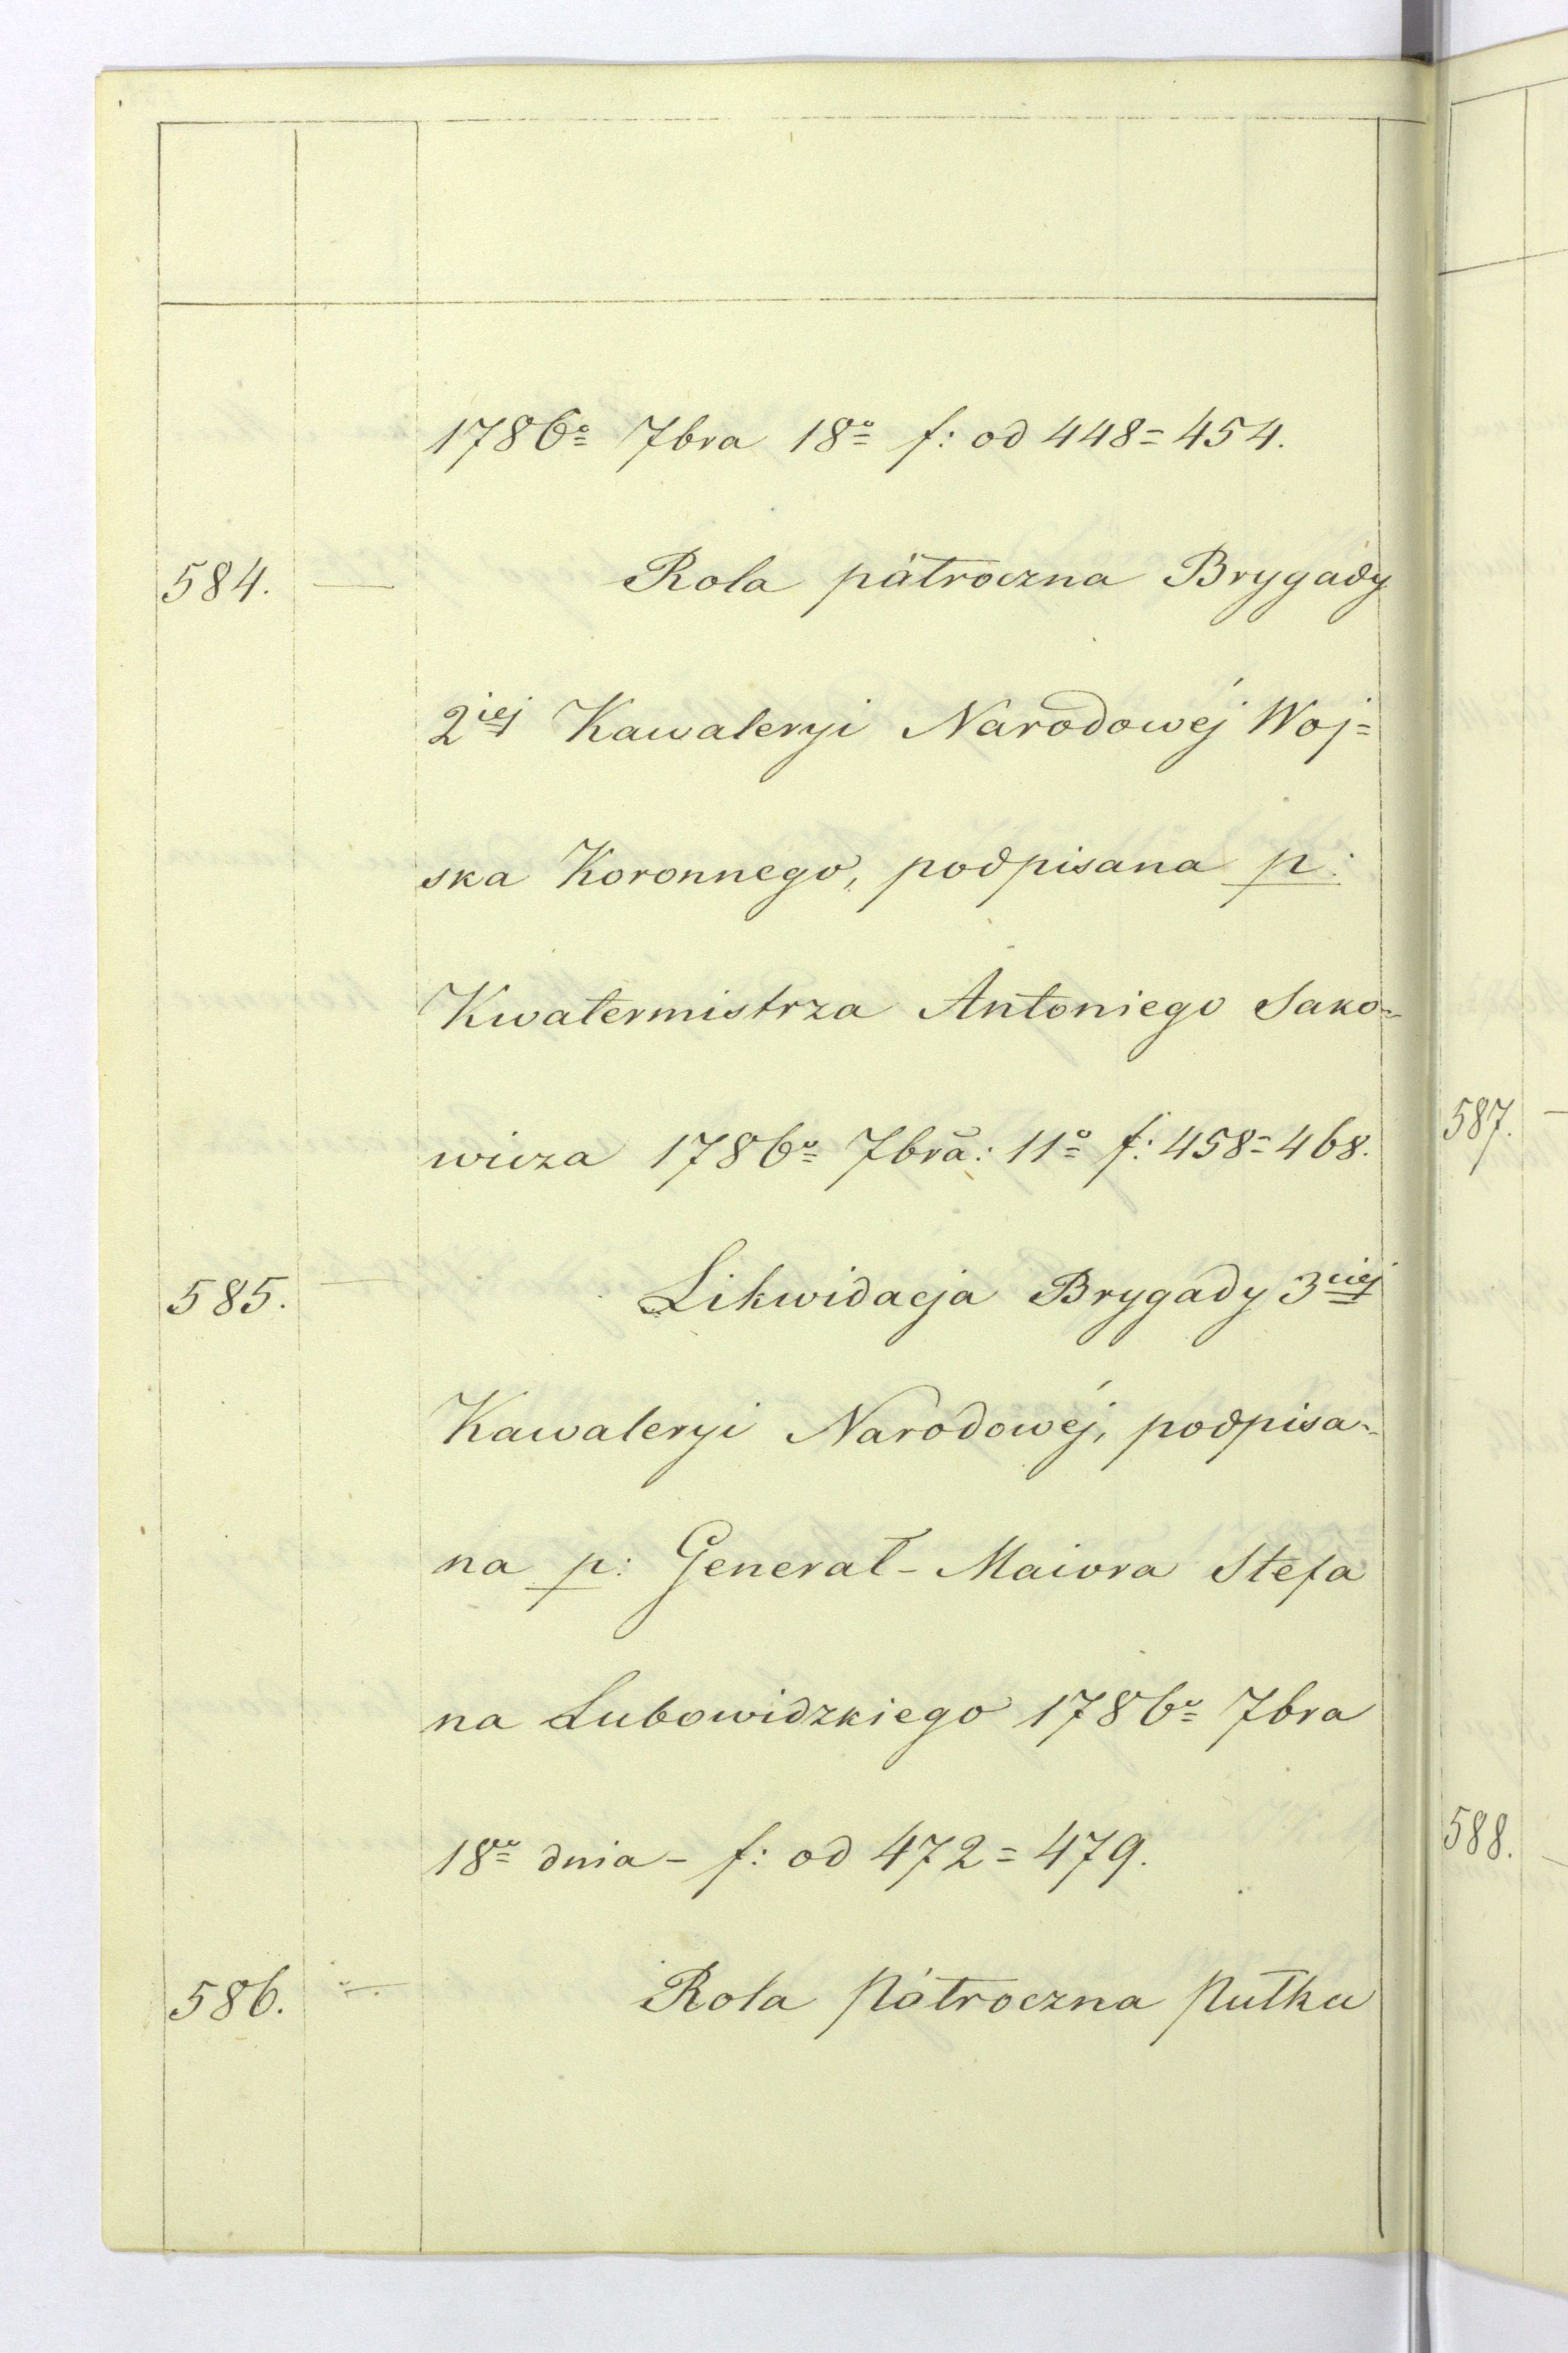 1786º 7bra 18º f: od 448=454.
584. — Rola pátroczna Brygady
2iej Kawaleryi Narodowéj Woj=
ska Koronnego, podpisana p:
Kwatermistrza Antoniego Sako=
wicza 1786º 7bra: 11º f: 458=468.
585. — Likwidacja Brygady 3ciej
Kawaleryi Narodowéj, podpisa=
na p: Generał-Maiora Stefa
na Lubowidzkiego 1786º 7bra
18º dnia - f: od 472=479.
586. — Rola pótroczna Pułku
587. —
588. —